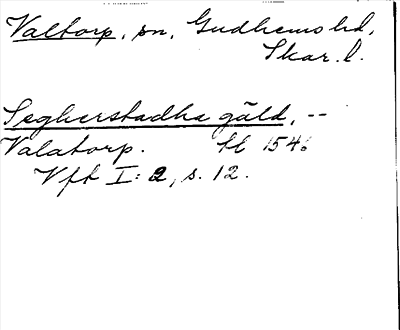 Valtorp, sn, Gudhems hd,
Skar. l.
Segherstadha gäld, --
Valatorp. Hl 1546
Vft I: 2, s. 12.